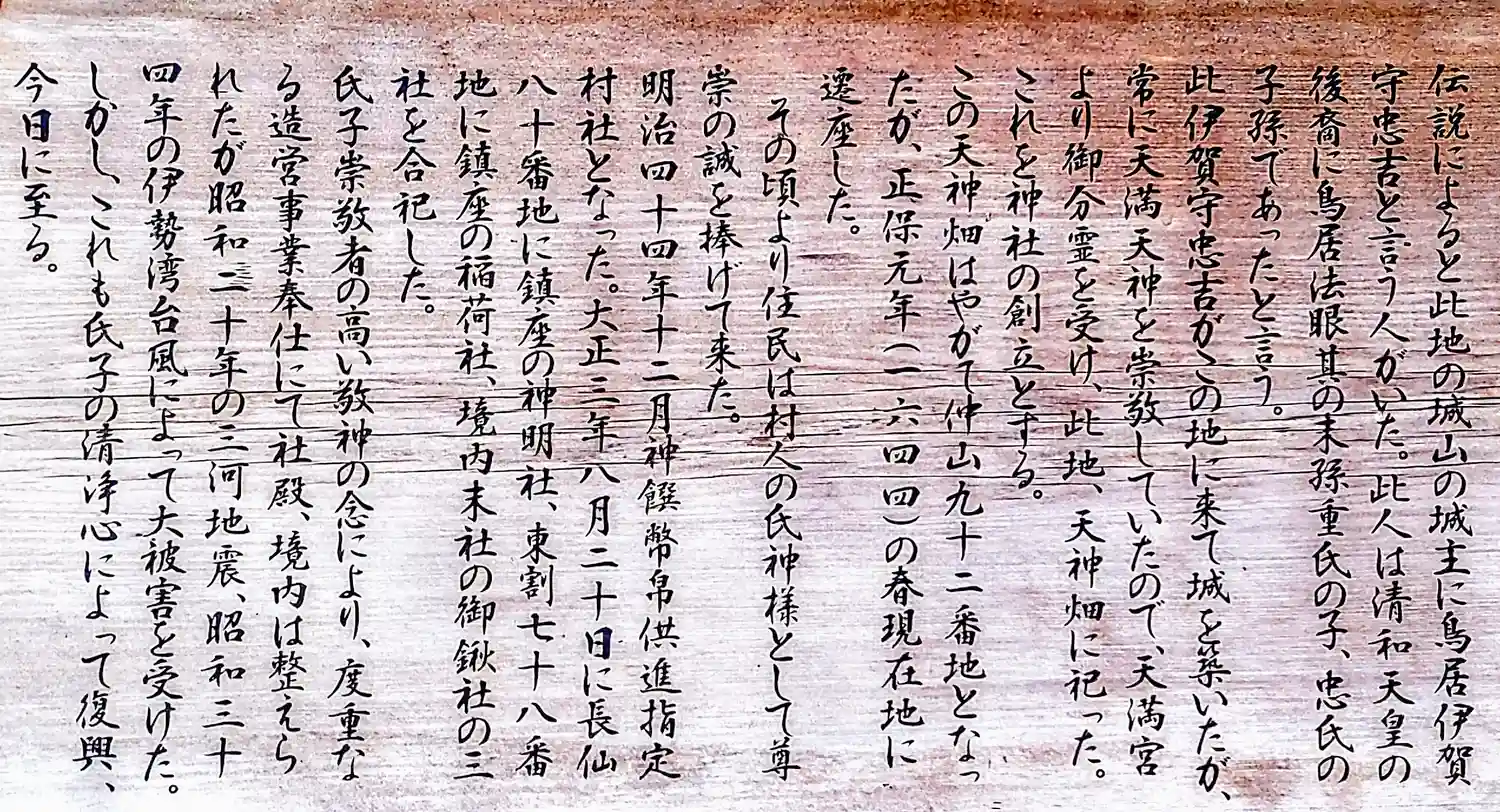 伝説によると此地の城山の城主に鳥居伊賀
守忠吉と言う人がいた。此人は清和天皇の
後裔に鳥居法眼其の末孫重氏の子、忠氏の
子孫であったと言う。
此伊賀守忠吉がこの地に来て城を築いたが、
常に天満天神を崇敬していたので、天満宮
より御分霊を受け、此地、天神畑に祀った。
これを神社の創立とする。
この天神畑はやがて仲山九十二番地となっ
たが、正保元年(一六四四)の春現在地に
遷座した。
その頃より住民は村人の氏神様として尊
崇の誠を捧げて来た。
明治四十四年十二月神饌幣帛供進指定
村社となった。大正三年八月二十日に長仙
八十番地に鎮座の神明社、東割七十八番
地に鎮座の稲荷社、境内末社の御鍬社の三
社を合祀した。
氏子崇敬者の高い敬神の念により、度重な
る造営事業奉仕にて社殿、境内は整えら
れたが昭和二十年の三河地震、昭和三十
四年の伊勢湾台風によって大被害を受けた。
しかし、これも氏子の清浄心によって復興、
今日に至る。